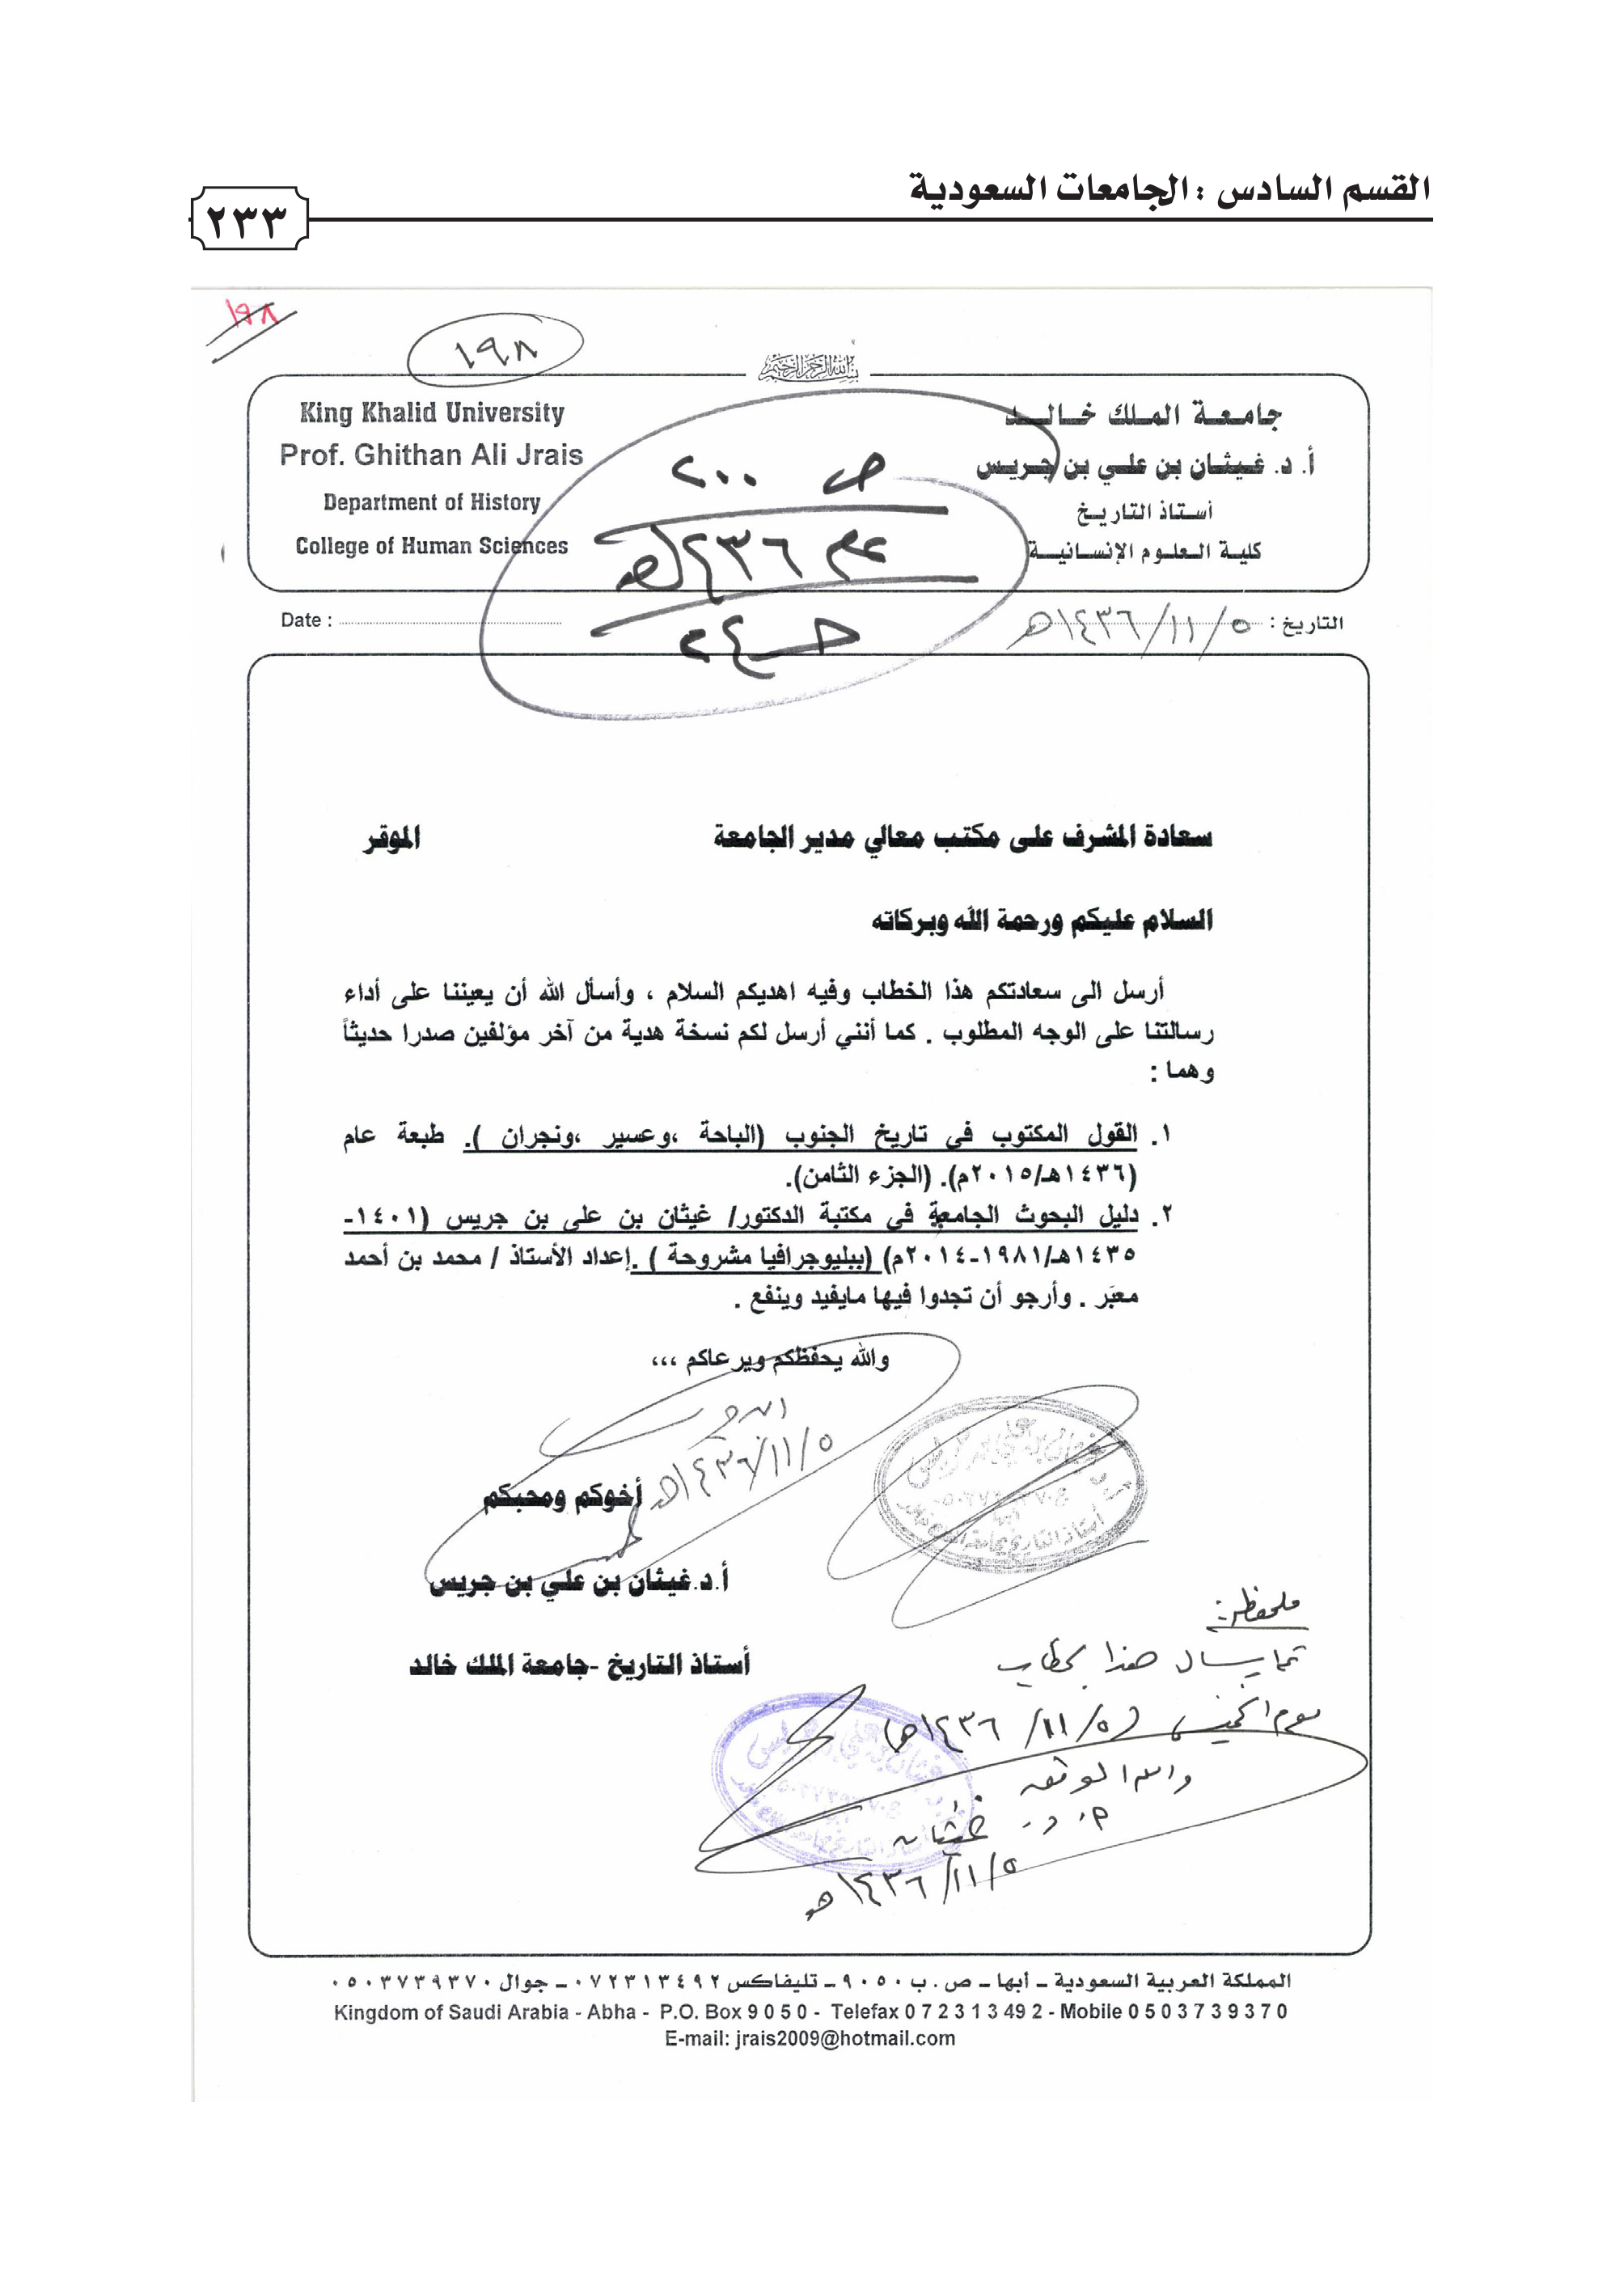 القسم السادس : الجامعات السعودية
٢٣٣
١٩٨
١٩٨
بسم الله الرحمن الرحيم
جامعة الملك خالد
أ. د. غيثان بن علي بن جريس
أستاذ التاريخ
كلية العلوم الإنسانية
King Khalid University
Prof. Ghithan Ali Jrais
Department of History
College of Human Sciences
ص ٢٠٠
عام ١٤٣٦هـ
التاريخ : ٥/ ١١/ ١٤٣٦هـ
Date :
سعادة المشرف على مكتب معالي مدير الجامعة الموقر
السلام عليكم ورحمة الله وبركاته
أرسل الى سعادتكم هذا الخطاب وفيه اهديكم السلام ، وأسأل الله أن يعيننا على أداء
رسالتنا على الوجه المطلوب . كما أنني أرسل لكم نسخة هدية من آخر مؤلفين صدرا حديثاً
وهما :
١. القول المكتوب في تاريخ الجنوب (الباحة ،وعسير ،ونجران ). طبعة عام
(١٤٣٦هـ/٢٠١٥م). (الجزء الثامن).
٢. دليل البحوث الجامعية في مكتبة الدكتور/ غيثان بن علي بن جريس (١٤٠١-
١٤٣٥هـ/١٩٨١-٢٠١٤م) (ببليوجرافيا مشروحة ) .إعداد الأستاذ / محمد بن أحمد
معبَر . وأرجو أن تجدوا فيها مايفيد وينفع .
والله يحفظكم ويرعاكم ،،،
٥/ ١١/ ١٤٣٦هـ
أخوكم ومحبكم
أ.د.غيثان بن علي بن جريس
أستاذ التاريخ -جامعة الملك خالد
ملحوظة:
تم إرسال هذا الخطاب
يوم الخميس (٥/ ١١/ ١٤٣٦هـ)
والله الموفق
أ. د. غيثان
٥/ ١١/ ١٤٣٦هـ
المملكة العربية السعودية ـ أبها ـ ص . ب ٩٠٥٠ ـ تليفاكس ٠٧٢٣١٣٤٩٢ ـ جوال ٠٥٠٣٧٣٩٣٧٠
Kingdom of Saudi Arabia - Abha - P.O. Box 9 0 5 0 - Telefax 0 7 2 3 1 3 49 2 - Mobile 0 5 0 3 7 3 9 3 7 0
E-mail: jrais2009@hotmail.com